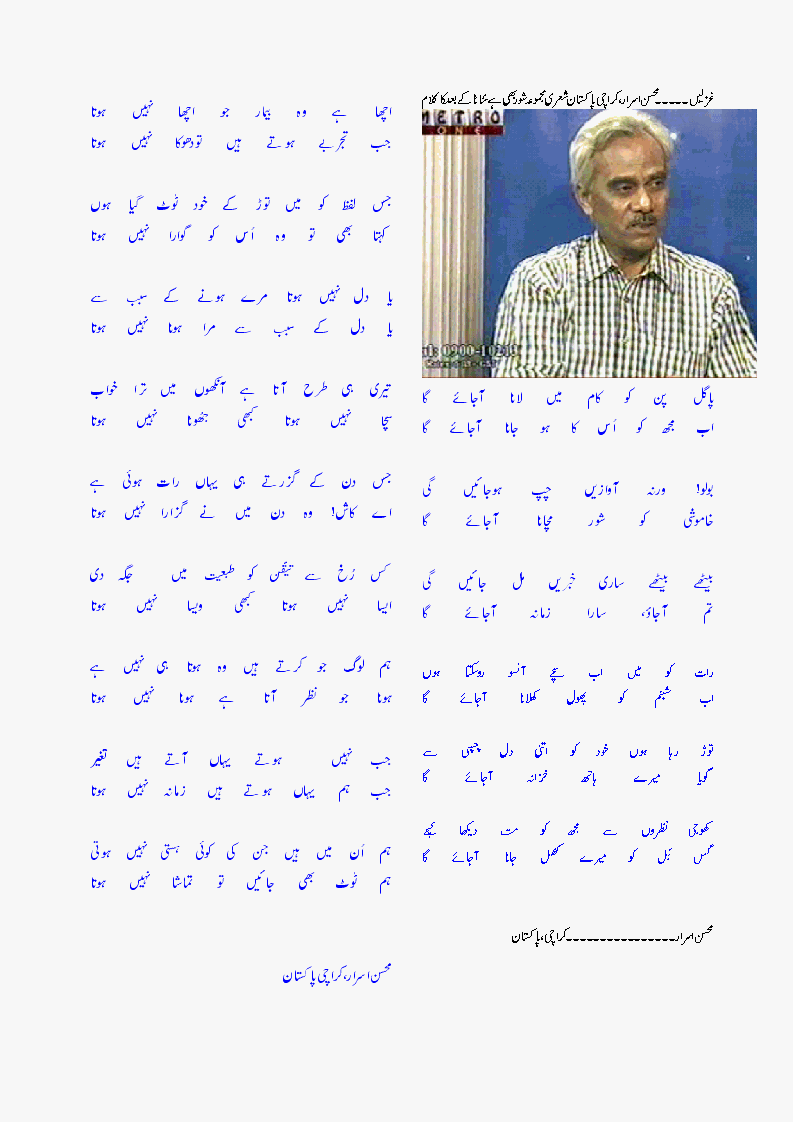 غزلیں ۔۔۔۔۔ محسن اسرار، کراچی پاکستان شعری مجموعہ شور بھی ہے سناٹا کے بعد کا کلام
METRO
ONE
پاگل پن کو کام میں لانا آجائے گا
اب مجھ کو اُس کا ہو جانا آجائے گا
بولو! ورنہ آوازیں چپ ہوجائیں گی
خاموشی کو شور مچانا آجائے گا
بیٹھے بیٹھے ساری خبریں مل جائیں گی
تم آجاؤ، سارا زمانہ آجائے گا
رات کو میں اب سچے آنسو روسکتا ہوں
اب شبنم کو پھول کھلانا آجائے گا
توڑ رہا ہوں خود کو اتنی دل چسپی سے
گویا میرے ہاتھ خزانہ آجائے گا
کھوجی نظروں سے مجھ کو مت دیکھا کیجے
کس بَل کو میرے کھل جانا آجائے گا
محسن اسرار۔۔۔۔۔۔۔۔۔۔۔۔۔۔۔۔کراچی، پاکستان
اچھا ہے وہ بیمار جو اچھا نہیں ہوتا
جب تجربے ہوتے ہیں تو دھوکا نہیں ہوتا
جس لفظ کو میں توڑ کے خود ٹوٹ گیا ہوں
کہتا بھی تو وہ اُس کو گوارا نہیں ہوتا
یا دل نہیں ہوتا مرے ہونے کے سبب سے
یا دل کے سبب سے مرا ہونا نہیں ہوتا
تیری ہی طرح آتا ہے آنکھوں میں ترا خواب
سچا نہیں ہوتا کبھی جھوٹا نہیں ہوتا
جس دن کے گزرتے ہی یہاں رات ہوئی ہے
اے کاش! وہ دن میں نے گزارا نہیں ہوتا
کس رُخ سے تیقّن کو طبعیت میں جگہ دی
ایسا نہیں ہوتا کبھی ویسا نہیں ہوتا
ہم لوگ جو کرتے ہیں وہ ہوتا ہی نہیں ہے
ہونا جو نظر آتا ہے ہونا نہیں ہوتا
جب نہیں ہوتے یہاں آتے ہیں تغیر
جب ہم یہاں ہوتے ہیں زمانہ نہیں ہوتا
ہم اُن میں ہیں جن کی کوئی ہستی نہیں ہوتی
ہم ٹوٹ بھی جائیں تو تماشا نہیں ہوتا
محسن اسرار، کراچی پاکستان